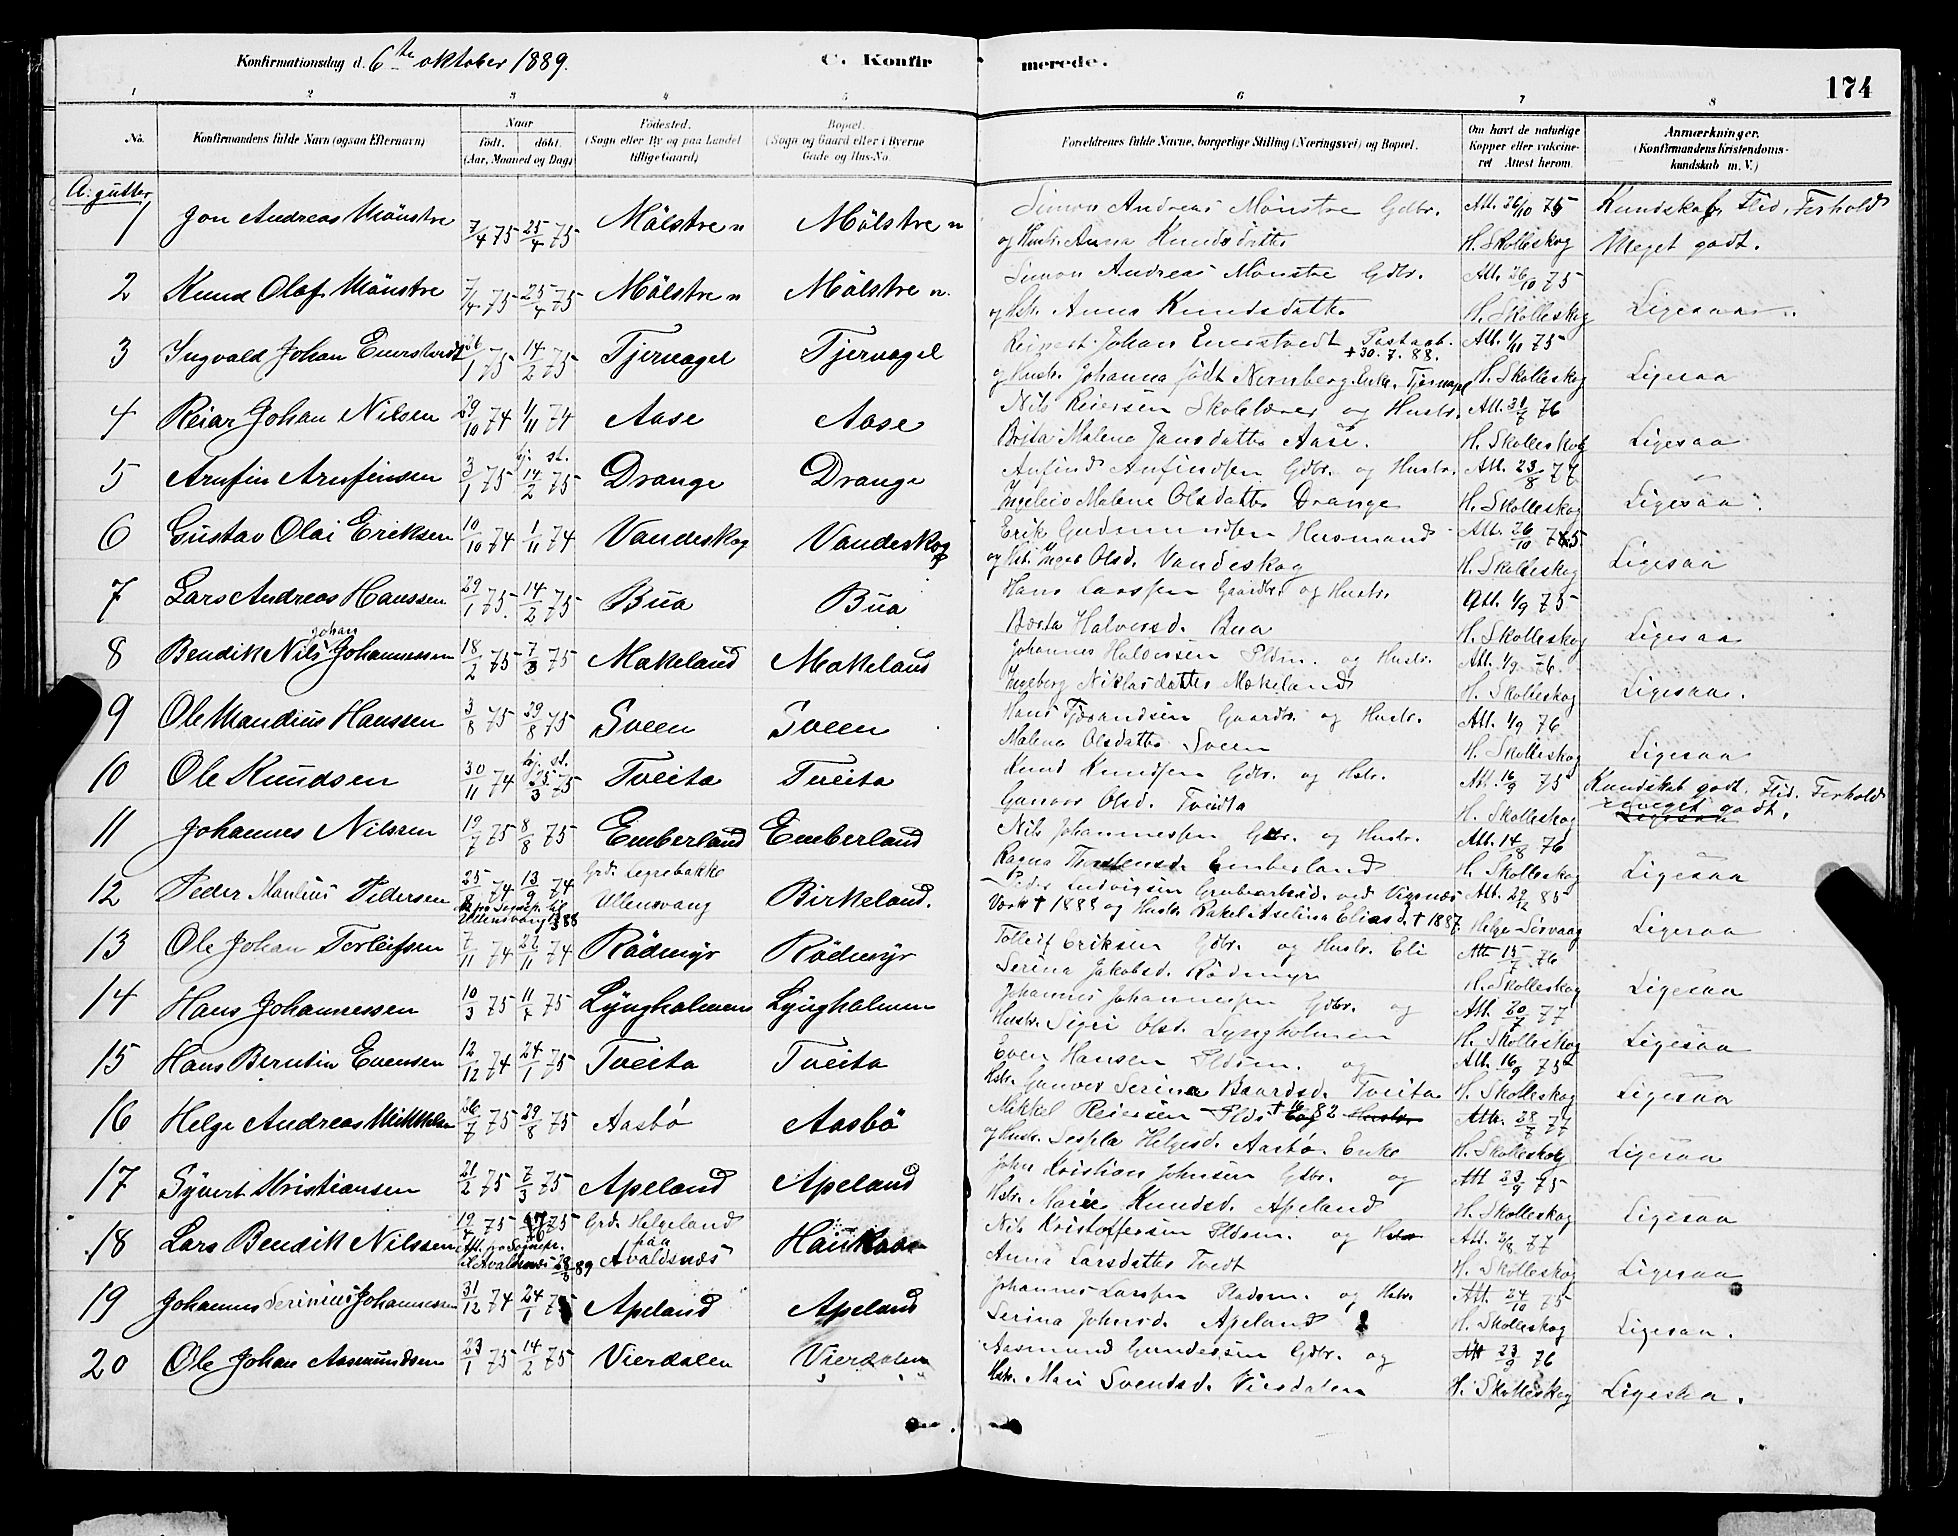 Konfirmationsdag d. 6te oktober 1889. C. Konfirmerede. 174
1 2 3 4 5 6 7 8
No. Konfirmandens fulde Navn (ogsaa Efternavn) Naar født. døbt. (Aar, Maaned og Dag) Fødested. (Sogn eller By og paa Landet tillige Gaard) Bopæl. (Sogn og Gaard eller i Byerne Gade og Hus-No. Forældrenes fulde Navne, borgerlige Stilling (Næringsvei) og Bopæl. Om havt de naturlige Kopper eller vaccineret Attest herom. Anmærkninger. (Konfirmandens Kristendomskundskab m. V.)
A: gutter
1 Jon Andreas Mönstre 7/4 75 25/4 75 Mölstre n Mölstre n Simon Andreas Mönstre Gdbr. Att. 26/10 75 Kundskab, Flid, Forhold
og Hustr. Anna Knudsdatter H. Skolleskog Meget godt.
2 Knud Olaf Mönstre 7/4 75 25/4 75 Mölstre n Mölstre n. Simon Andreas Mönstre Gdbr. Att. 26/10 75
og Hstr. Anna Knudsdatter H. Skolleskog Ligesaa
3 Ingvald Johan Enerstvedt 26/1 75 14/2 75 Tjernagel Tjernagel Reinert Johan Enerstvedt + 30. 7. 88. Att. 1/11 75
og Hustr. Johanna født Nernberg Enke Tjernagel H. Skolleskog Ligesaa
4 Reiar Johan Nilsen 29/10 74 1/11 74 Aase Aase Nils Reiersen Skolelærer og Hustr. Att. 31/7 76
Brita Malena Jansdatter Aase. H. Skolleskog Ligesaa
5 Arnfin Arnfinsen 3/1 75 hj. st. 14/2 75 Drange Drange Anfind Anfindsen Gdbr. og Hustr. Att. 23/8 77
Ingeleiv Malene Olsdatter Drange H. Skolleskog Ligesaa
6 Gustav Olai Eriksen 10/10 74 1/11 74 Vandeskog Vandeskog Erik Gudmundsen Husmand Att. 26/10 75
og Hstr. Inger Olsd. Vandeskog H. Skolleskog Ligesaa
7 Lars Andreas Hanssen 29/1 75. 14/2 75 Bua Bua Hans Larssen Gaardbr. og Hustr. Att. 1/9 75
Berta Halversd. Bua H. Skolleskog Ligesaa
8 Bendik Nils Johan Johannessen 18/2 75 7/3 75 Mækeland Mækeland Johannes Halversen Pldsm. og Hustr. Att. 1/9 76.
Ingeborg Niklasdatter Mækeland H. Skolleskog Ligesaa.
9 Ole Mandius Hanssen 3/8 75 29/8 75 Sveen Sveen Hans Tjerandsen Gaardbr. og Hustr. Att. 1/9 76
Malena Olsdatter Sveen H. Skolleskog Ligesaa
10 Ole Knudsen 30/11 74 hj. st. 25/3 75 Tveita Tveita Knud Knudsen Gdbr. og Hstr. Att. 16/9 75 Kundskab godt. Flid. Forhold
Gunvor Olsd. Tveita H. Skolleskog meget godt.
11 Johannes Nilssen 19/7 75 8/8 75 Emberland Emberland Nils Johannessen Gdbr. og Hustr. Att. 14/8 76
Ragna Thorstensd. Emberland H. Skolleskog Ligesaa
12 Peder Manlius Pedersen 25/8 74 13/9 74 Grd. Legrebakke Ullensvang Birkeland. Peder Ludvigsen Grubearbeid. ved Vigsnæs Att. 2/12 85
Værk † 1888 og Hustr. Rakel Aselina Eliasd. † 1887. Helge Servaag Ligesaa
13 Ole Johan Torleifsen 7/11 74 22/11 74 Rødmyr Rødmyr Tolleif Eriksen Gdbr. og Hustr. Eli Att. 15/7 76
Serina Jakobsd. Rødmyr H. Skolleskog Ligesaa
14 Hans Johannessen 10/3 75 11/4 75 Lyngholmen Lyngholmen Johannes Johannessen Gdbr. og Att. 20/7 77
Hustr. Sigri Olsd. Lyngholmen H. Skolleskog Ligesaa
15 Hans Berntin Evensen 12/12 74 24/1 75 Tveita Tveita Even Hansen Pldsm. og Att. 16/9 75
Hstr. Gunvor Serina Baardsd. Tveita H. Skolleskog Ligesaa
16 Helge Andreas Mikkelsen 26/7 75 29/8 75 Aasbø Aasbø Mikkel Reiersen Plds. Att. 28/7 77
og Hustr. Helgesd. Aasbø Enke H. Skolleskog Ligesaa
17 Syvert Kristiansen 21/2 75 7/3 75 Apeland Apeland John Kristian Johnsen Gdbr. og Att. 23/9 75
Hstr. Marie Knudsd. Apeland H. Skolleskog Ligesaa
18 Lars Bendik Nilssen 75 Grd. Helgeland paa Avaldsnæs Nils Kristoffersen Pldsm. og Hstr. Att. 2/8 77
Anna Larsdatter Tvedt H. Skolleskog Ligesaa
19 Johannes Serinius Johannessen 31/12 74 24/1 75 Apeland Apeland Johannes Larssen Pladsm. og Hstr. Att. 24/10 75
Serina Johnsd. Apeland H. Skolleskog Ligesaa.
20 Ole Johan Aasmundsen 23/1 75 14/2 75 Vierdalen Vierdalen Aasmund Gundersen Gdbr. og Att 23/9 76
Hstr. Mari Svendsd. Vierdalen H. Skolleskog Ligesaa.